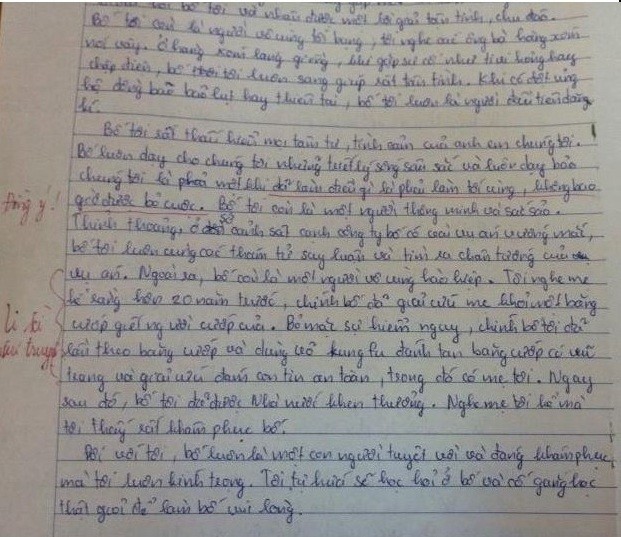 với bố tôi và nhận được một lời giải tận tình, chu đáo.
Bố tôi còn là người vô cùng tốt bụng, tôi nghe các ông bà hàng xóm
nói vậy. Ở hàng xóm láng giềng, khi gặp sự cố như tivi hỏng hay
chập điện, bố tôi luôn sang giúp rất tận tình. Khi có đợt ủng
hộ đồng bào bão lụt hay thiên tai, bố tôi luôn là người đầu tiên đăng
kí.
Bố tôi rất thấu hiểu mọi tâm tư, tình cảm của anh em chúng tôi.
Bố luôn dạy cho chúng tôi những triết lý sống sâu sắc và luôn dạy bảo
chúng tôi là phải một khi đã làm điều gì là phải làm tới cùng, không bao
Đồng ý! giờ được bỏ cuộc. Bố tôi còn là một người thông minh và sắc sảo.
Thỉnh thoảng, ở sở cảnh sát cạnh công ty bố có vài vụ án vướng mắc,
bố tôi luôn cùng các thám tử suy luận và tìm ra chân tướng của
vụ án. Ngoài ra, bố còn là một người vô cùng hào hiệp. Tôi nghe mẹ
kể rằng hơn 20 năm trước, chính bố đã giải cứu mẹ khỏi một băng
cướp giết người cướp của. Bỏ mặc sự hiểm nguy, chính bố tôi đã
truyện lần theo băng cướp và dùng võ kungfu đánh tan băng cướp có vũ
trang và giải cứu đám con tin an toàn, trong đó có mẹ tôi. Ngay
sau đó, bố tôi đã được Nhà nước khen thưởng. Nghe mẹ tôi kể mà
tôi thấy rất khâm phục bố.
Đối với tôi, bố luôn là một con người tuyệt vời và đáng khâm phục
mà tôi luôn kính trọng. Tôi tự hứa sẽ học hỏi ở bố và cố gắng học
thật giỏi để làm bố vui lòng.